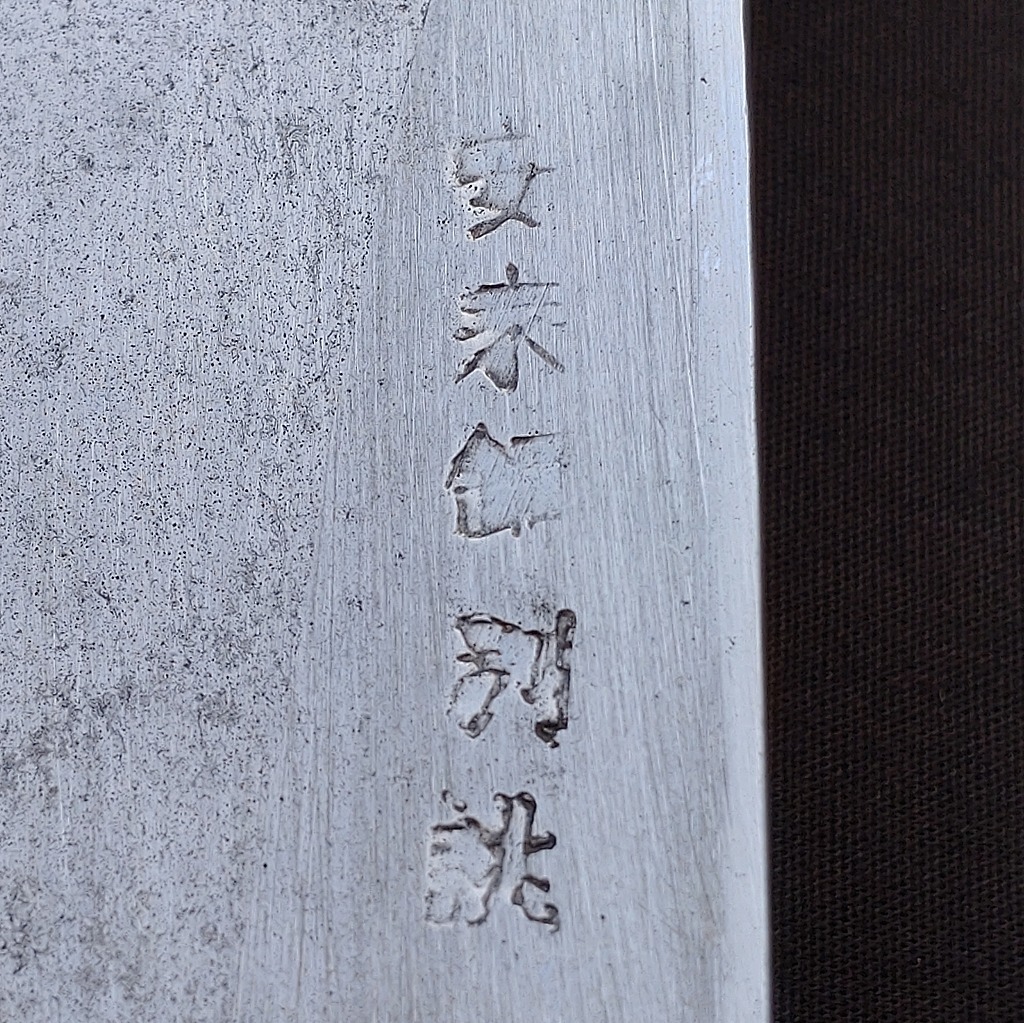 安来鋼別誂